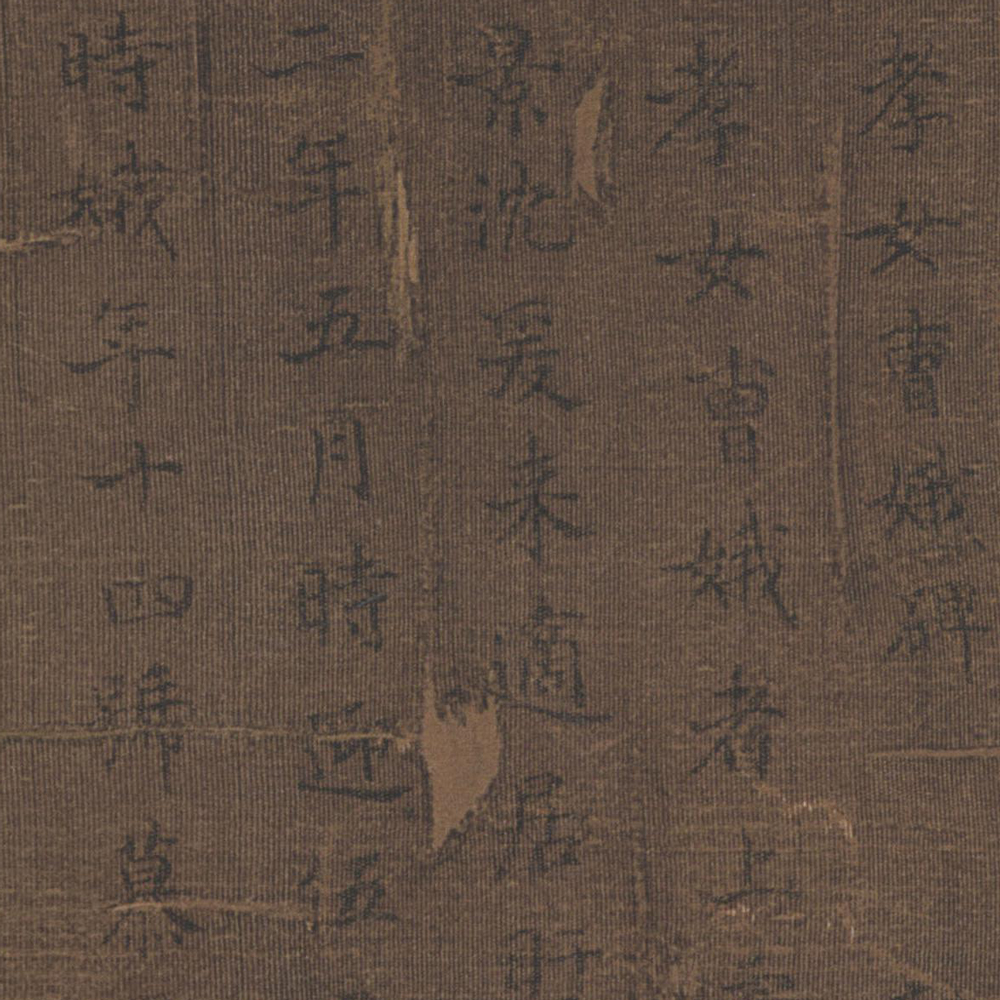 孝女曹娥碑
孝女曹娥者上
景沉爰来適居盱
二年五月時迎伍
時娥年十四號慕